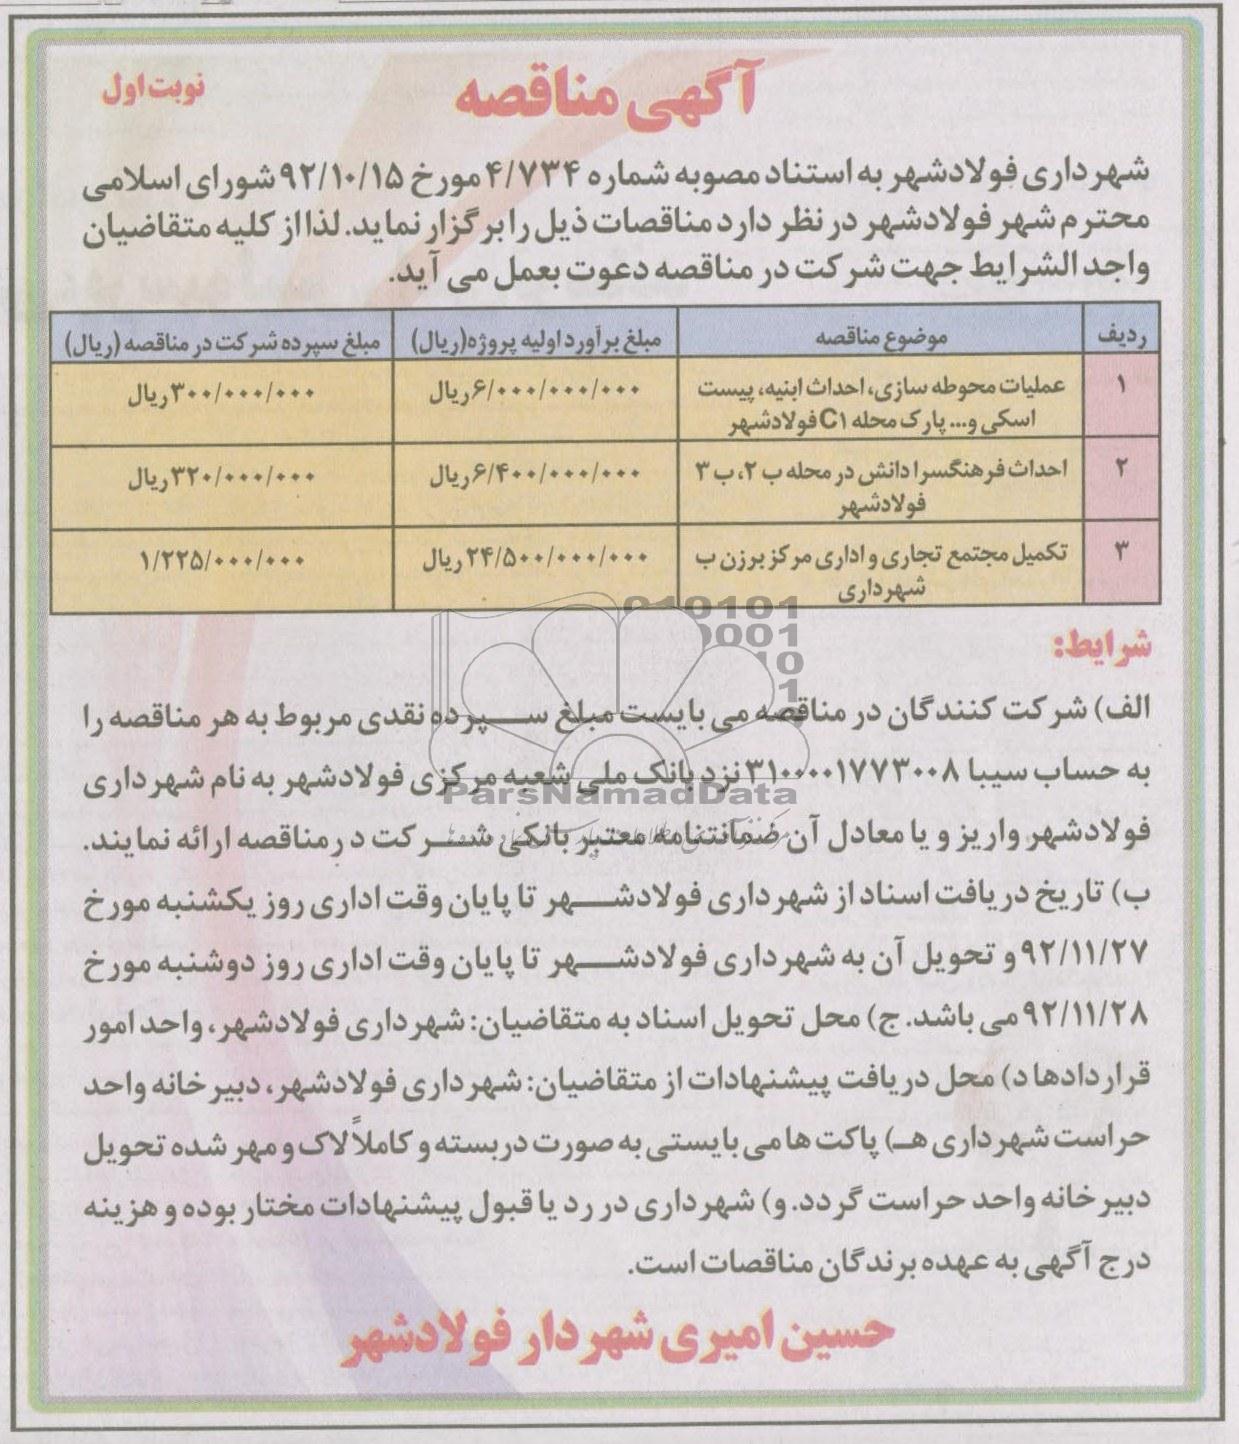 آگهی مناقصه
نوبت اول
شهرداری فولادشهر به استناد مصوبه شماره ۴/۷۳۴ مورخ ۹۲/۱۰/۱۵ شورای اسلامی
محترم شهر فولادشهر در نظر دارد مناقصات ذیل را برگزار نماید. لذا از کلیه متقاضیان
واجد الشرایط جهت شرکت در مناقصه دعوت بعمل می آید.
ردیف موضوع مناقصه مبلغ برآورد اولیه پروژه(ریال) مبلغ سپرده شرکت در مناقصه (ریال)
۱ عملیات محوطه سازی، احداث ابنیه، پیست ۶/۰۰۰/۰۰۰/۰۰۰ریال ۳۰۰/۰۰۰/۰۰۰ریال
اسکی و... پارک محله C۱ فولادشهر
۲ احداث فرهنگسرا دانش در محله ب ۲، ب ۳ ۶/۴۰۰/۰۰۰/۰۰۰ریال ۳۲۰/۰۰۰/۰۰۰ریال
فولادشهر
۳ تکمیل مجتمع تجاری و اداری مرکز برزن ب ۲۴/۵۰۰/۰۰۰/۰۰۰ریال ۱/۲۲۵/۰۰۰/۰۰۰
شهرداری
شرایط:
الف) شرکت کنندگان در مناقصه می بایست مبلغ سپرده نقدی مربوط به هر مناقصه را
به حساب سیبا ۳۱۰۰۰۰۱۷۷۳۰۰۸ نزد بانک ملی شعبه مرکزی فولادشهر به نام شهرداری
فولادشهر واریز و یا معادل آن ضمانتنامه معتبر بانکی شرکت در مناقصه ارائه نمایند.
ب) تاریخ دریافت اسناد از شهرداری فولادشهر تا پایان وقت اداری روز یکشنبه مورخ
۹۲/۱۱/۲۷ و تحویل آن به شهرداری فولادشهر تا پایان وقت اداری روز دوشنبه مورخ
۹۲/۱۱/۲۸ می باشد. ج) محل تحویل اسناد به متقاضیان: شهرداری فولادشهر، واحد امور
قراردادها د) محل دریافت پیشنهادات از متقاضیان: شهرداری فولادشهر، دبیرخانه واحد
حراست شهرداری هـ) پاکت ها می بایستی به صورت دربسته و کاملاً لاک و مهر شده تحویل
دبیرخانه واحد حراست گردد. و) شهرداری در رد یا قبول پیشنهادات مختار بوده و هزینه
درج آگهی به عهده برندگان مناقصات است.
حسین امیری شهردار فولادشهر
010101
0001
10
1
ParsNamadData